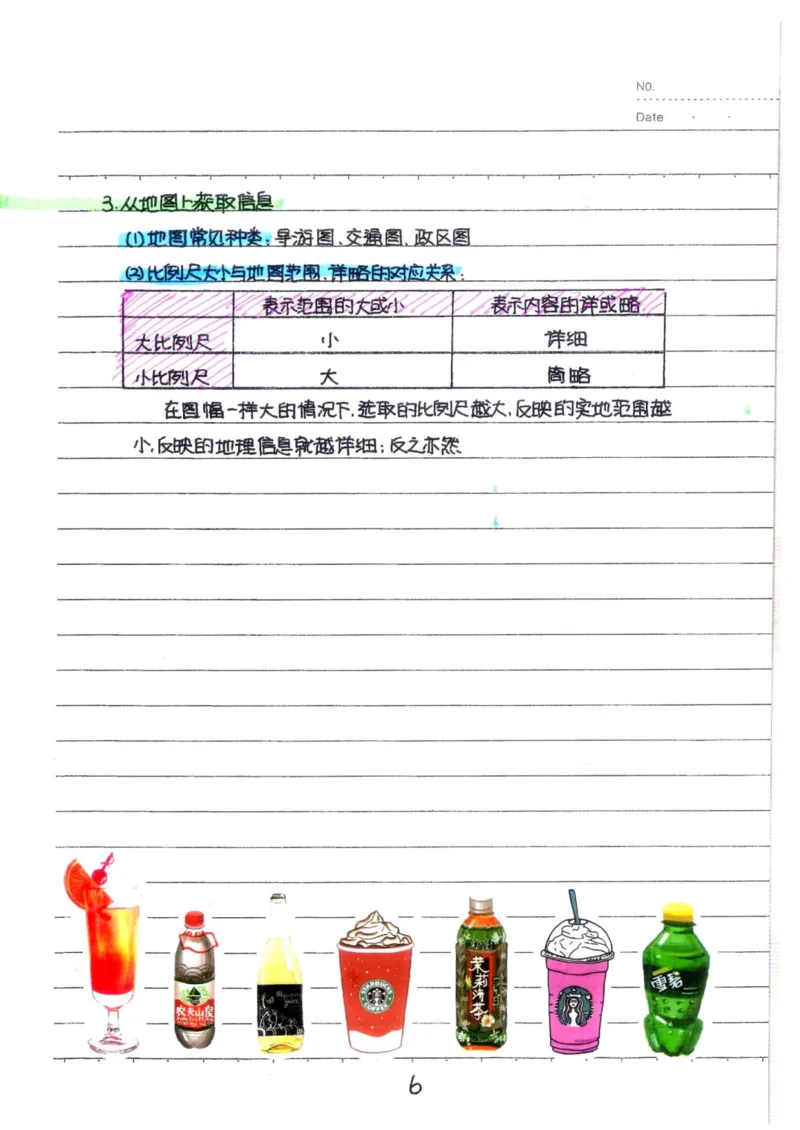 NO.
Date
3.从地图上获取信息
(1)地图常见种类:导游图、交通图、政区图
(2)比例尺大小与地图范围、详略的对应关系:
表示范围的大或小 表示内容的详或略
大比例尺 小 详细
小比例尺 大 简略
在图幅一样大的情况下,选取的比例尺越大,反映的实地范围越
小,反映的地理信息就越详细;反之亦然
农夫山泉
STARBUCKS
COFFEE
茉莉清茶
雪碧
6